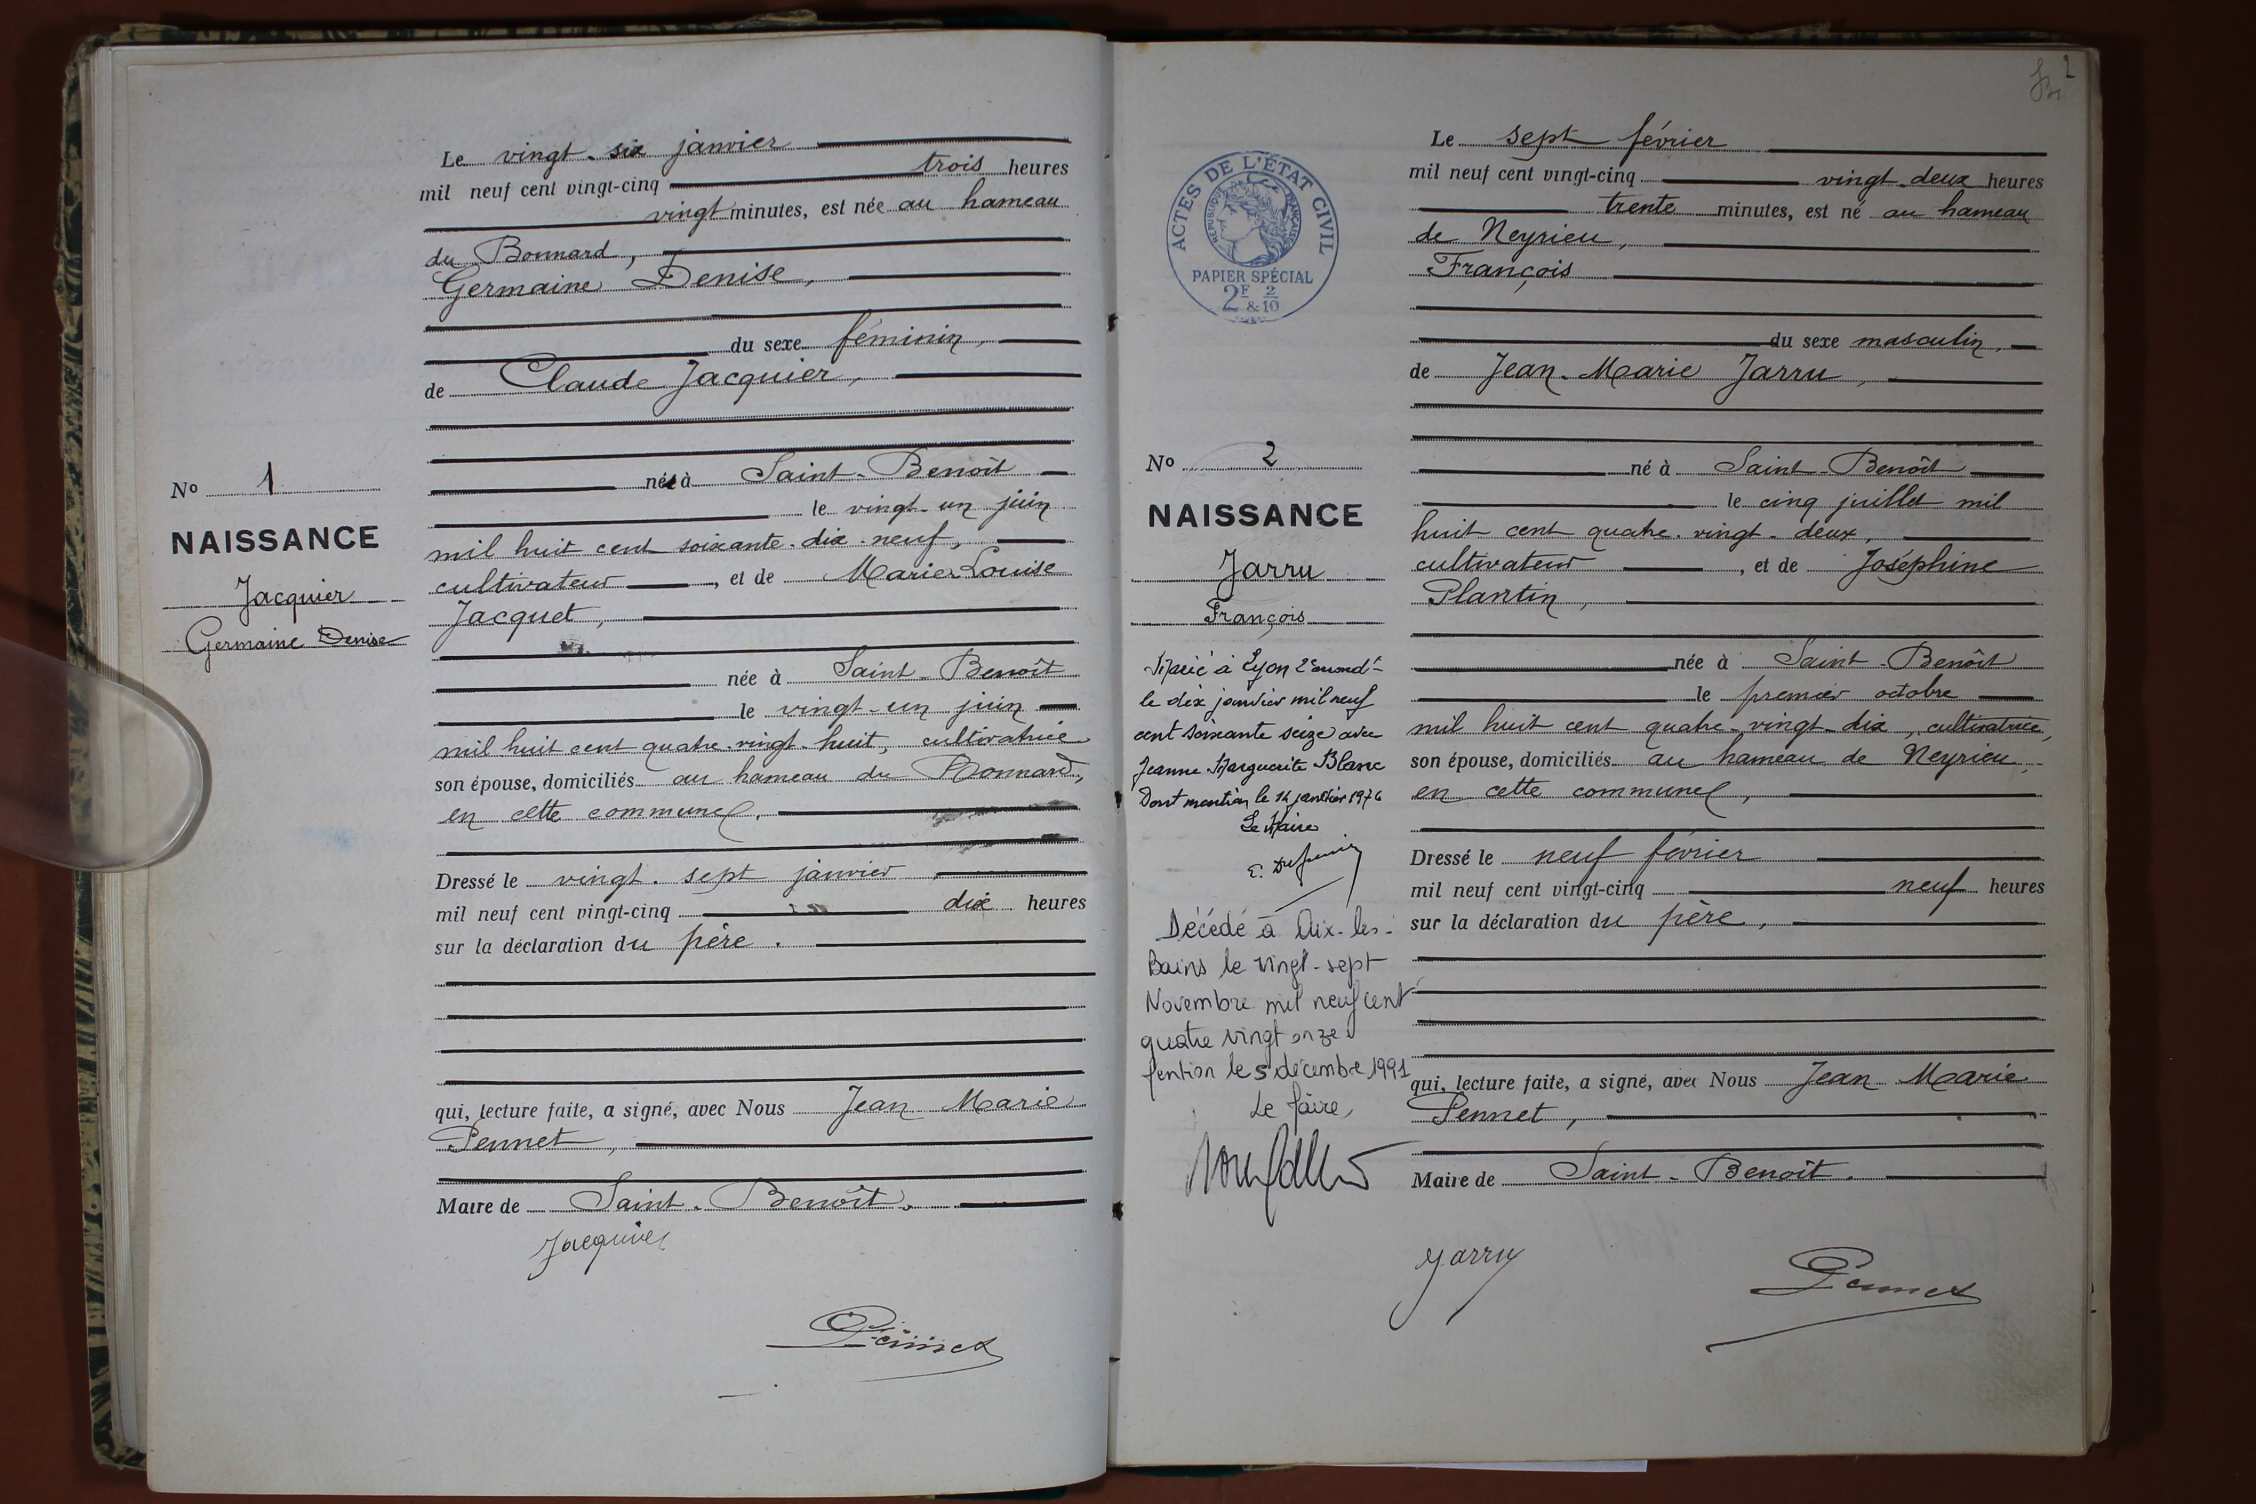 Le vingt-six janvier
mil neuf cent vingt-cinq trois heures
vingt minutes, est née au hameau
du Bonnard,
Germaine Denise,
du sexe féminin,
de Claude Jacquier,
né à Saint-Benoît
le vingt-un juin
mil huit cent soixante-dix-neuf,
cultivateur, et de Marie Louise
Jacquet,
née à Saint-Benoît
le vingt-un juin
mil huit cent quatre-vingt-huit, cultivatrice
son épouse, domiciliés au hameau du Bonnard,
en cette commune.
Dressé le vingt-sept janvier
mil neuf cent vingt-cinq dix heures
sur la déclaration du père.
qui, lecture faite, a signé, avec Nous Jean Marie
Pennet,
Maire de Saint-Benoît.
Jacquier
Pennet
No 1
NAISSANCE
Jacquier
Germaine Denise
2
ACTES DE L'ÉTAT CIVIL
RÉPUBLIQUE FRANÇAISE
PAPIER SPÉCIAL
2F & 2/10
No 2
NAISSANCE
Jarru
François
Marié à Lyon 2e arrondt
le dix janvier mil neuf
cent soixante seize avec
Jeanne Marguerite Blanc
Dont mention le 12 janvier 1976
Le Maire
Décédé à Aix-les-
Bains le vingt-sept
Novembre mil neuf cent
quatre vingt onze
Mention le 5 décembre 1991
Le Maire,
Le sept février
mil neuf cent vingt-cinq vingt-deux heures
trente minutes, est né au hameau
de Neyrieu,
François
du sexe masculin,
de Jean-Marie Jarru,
né à Saint-Benoît
le cinq juillet mil
huit cent quatre-vingt-deux,
cultivateur, et de Joséphine
Plantin,
née à Saint-Benoît
le premier octobre
mil huit cent quatre-vingt-dix, cultivatrice,
son épouse, domiciliés au hameau de Neyrieu,
en cette commune,
Dressé le neuf février
mil neuf cent vingt-cinq neuf heures
sur la déclaration du père,
qui, lecture faite, a signé, avec Nous Jean Marie
Pennet,
Maire de Saint-Benoît.
Jarru
Pennet